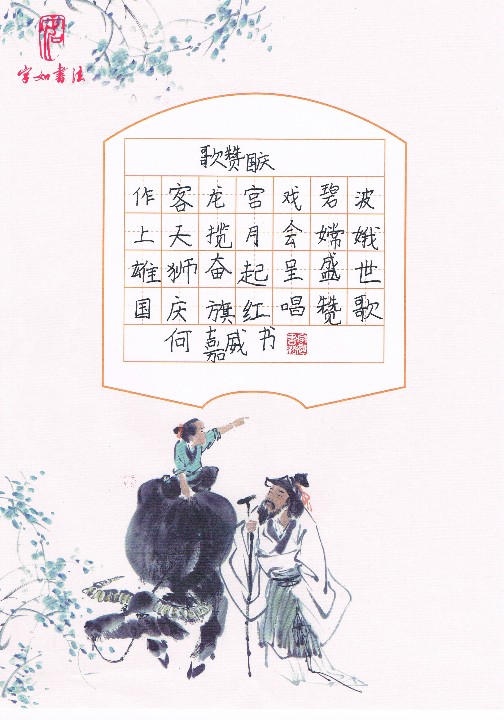 字如书法
歌赞国庆
作客龙宫戏碧波
上天揽月会嫦娥
雄狮奋起呈盛世
国庆旗红唱赞歌
何嘉威书